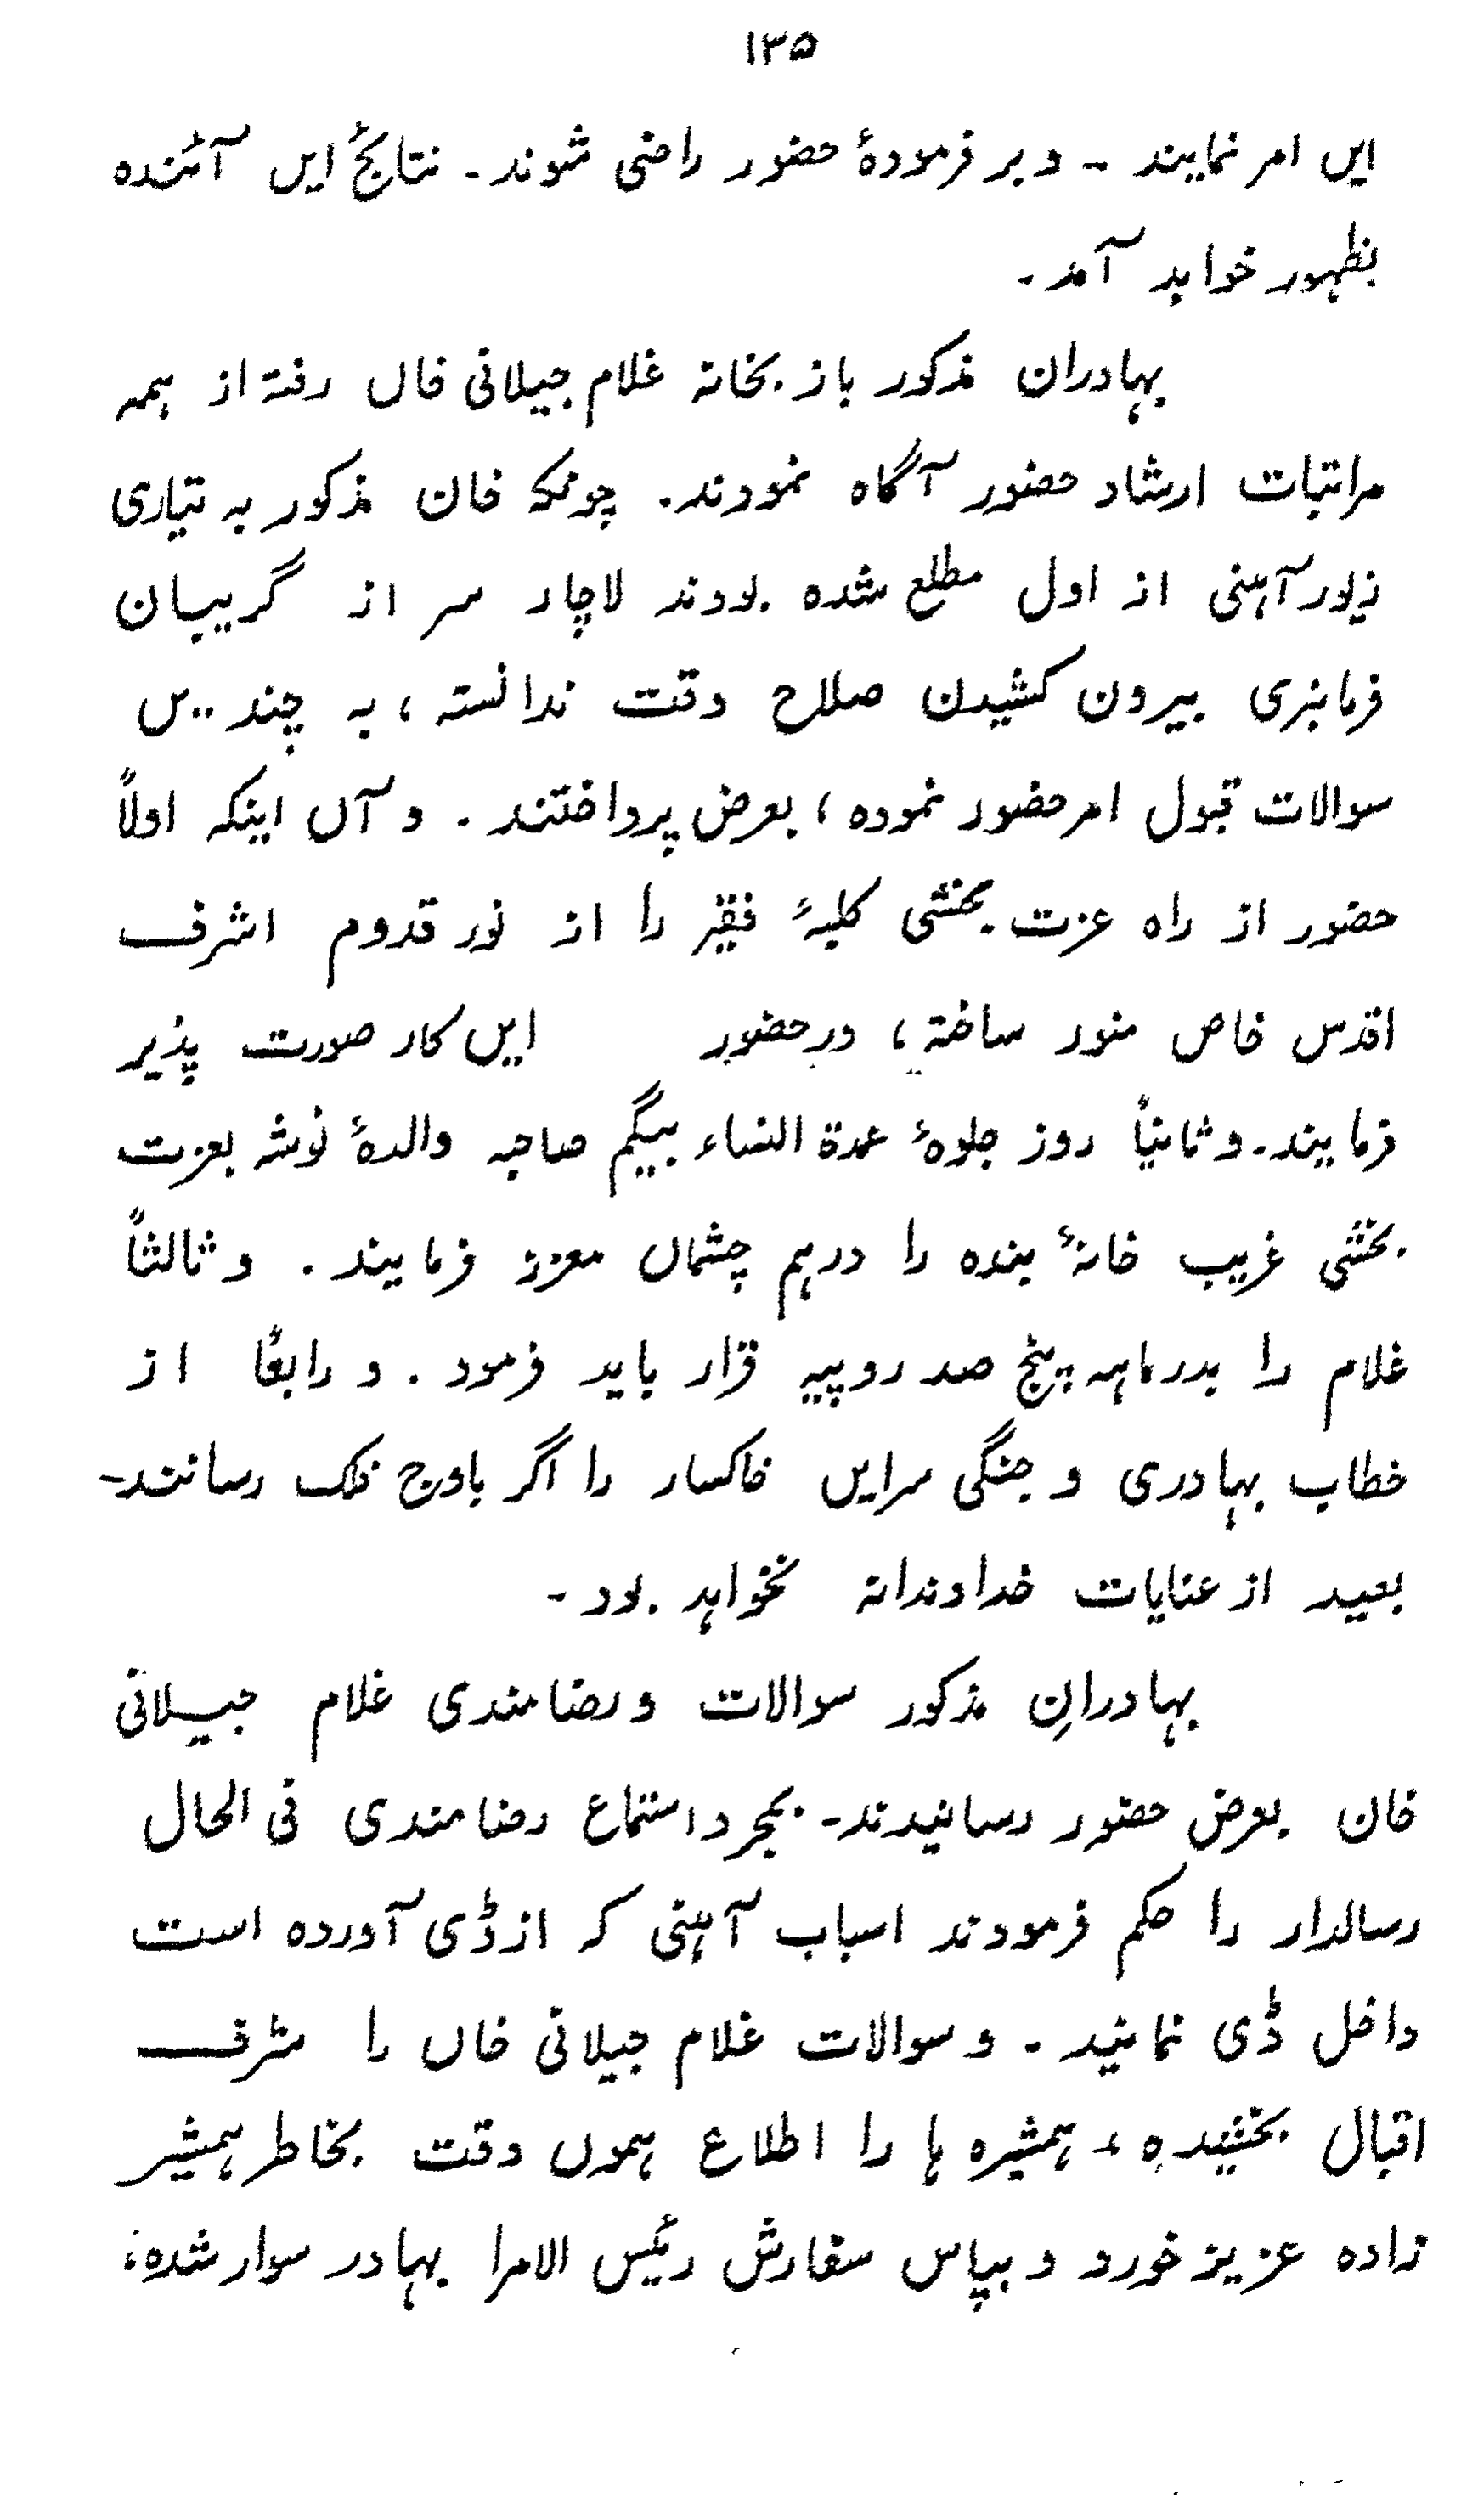 ۱۳۵
ایں امر نمایند ۔ و بر فرمودۂ حضور راضی شوند ۔ نتائج ایں آئندہ
بظہور خواہد آمد ۔
بہادران مذکور باز بخانہ غلام جیلانی خاں رفتہ از ہمہ
مراتبات ارشاد حضور آگاہ نمودند ۔ چونکہ خان مذکور بہ تیاری
زیور آہنی از اول مطلع شدہ بودند لاچار سر از گریبان
فرمانبری بیرون کشیدن صلاح وقت ندانستہ ، بہ چند
سوالات قبول امر حضور نمودہ ، بعرض پرداختند ۔ و آں اینکہ اولاً
حضور از راہ عزت بخشی کلبۂ فقیر را از نور قدوم اشرف
اقدس خاص منور ساختہ ، در حضور ایں کار صورت پذیر
فرمایند ۔ و ثانیاً روز جلوۂ عمدۃ النساء بیگم صاحبہ والدۂ نوشہ بعزت
بخشی غریب خانۂ بندہ را در ہم چشماں معزز فرمایند ۔ و ثالثاً
غلام را بدرماہہ پنج صد روپیہ قرار باید فرمود ۔ و رابعاً از
خطاب بہادری و جنگی سر ایں خاکسار را اگر باوج فلک رسانند ۔
بعید از عنایات خداوندانہ نخواہد بود ۔
بہادرانِ مذکور سوالات و رضامندی غلام جیلانی
خان بعرض حضور رسانیدند ۔ بمجرد استماع رضامندی فی الحال
رسالدار را حکم فرمودند اسباب آہنی کہ از ڈی آوردہ است
داخل ڈی نمائید ۔ و سوالات غلام جیلانی خاں را شرف
اقبال بخشیدہ ، ہمشیرہ ہا را اطلاع ہموں وقت بخاطر ہمشیر
زادہ عزیز خورد و بپاس سفارش رئیس الامرا بہادر سوار شدہ ،